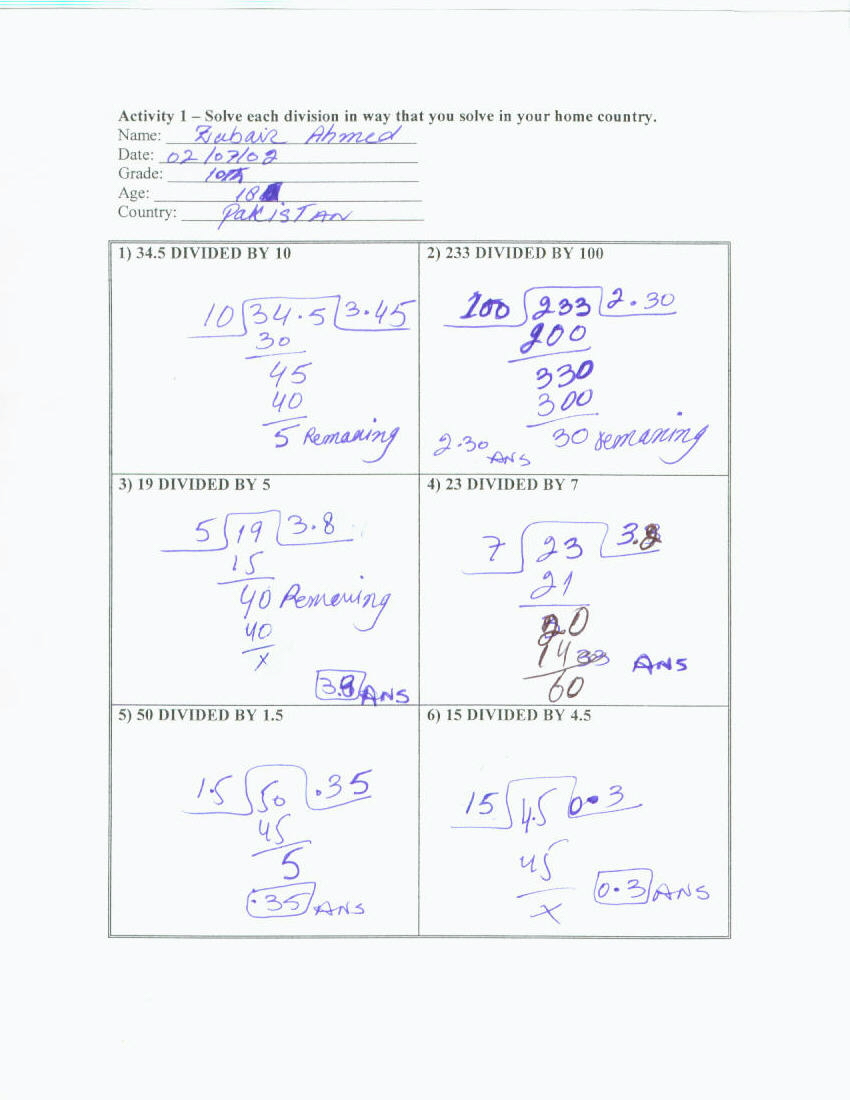 Activity 1 – Solve each division in way that you solve in your home country.
Name: Zubair Ahmed
Date: 02/07/02
Grade: 10th
Age: 18
Country: PakisTAN
1) 34.5 DIVIDED BY 10
10 34.5 3.45
30
45
40
5 Remaning
2) 233 DIVIDED BY 100
100 233 2.30
200
330
300
30 remaning
2.30
ANS
3) 19 DIVIDED BY 5
5 19 3.8
15
40 Remaning
40
x
3.8 ANS
4) 23 DIVIDED BY 7
7 23 3.2
21
20
14 ANS
60
5) 50 DIVIDED BY 1.5
1.5 50 .35
45
5
.35 ANS
6) 15 DIVIDED BY 4.5
15 4.5 0.3
45
x
0.3 ANS